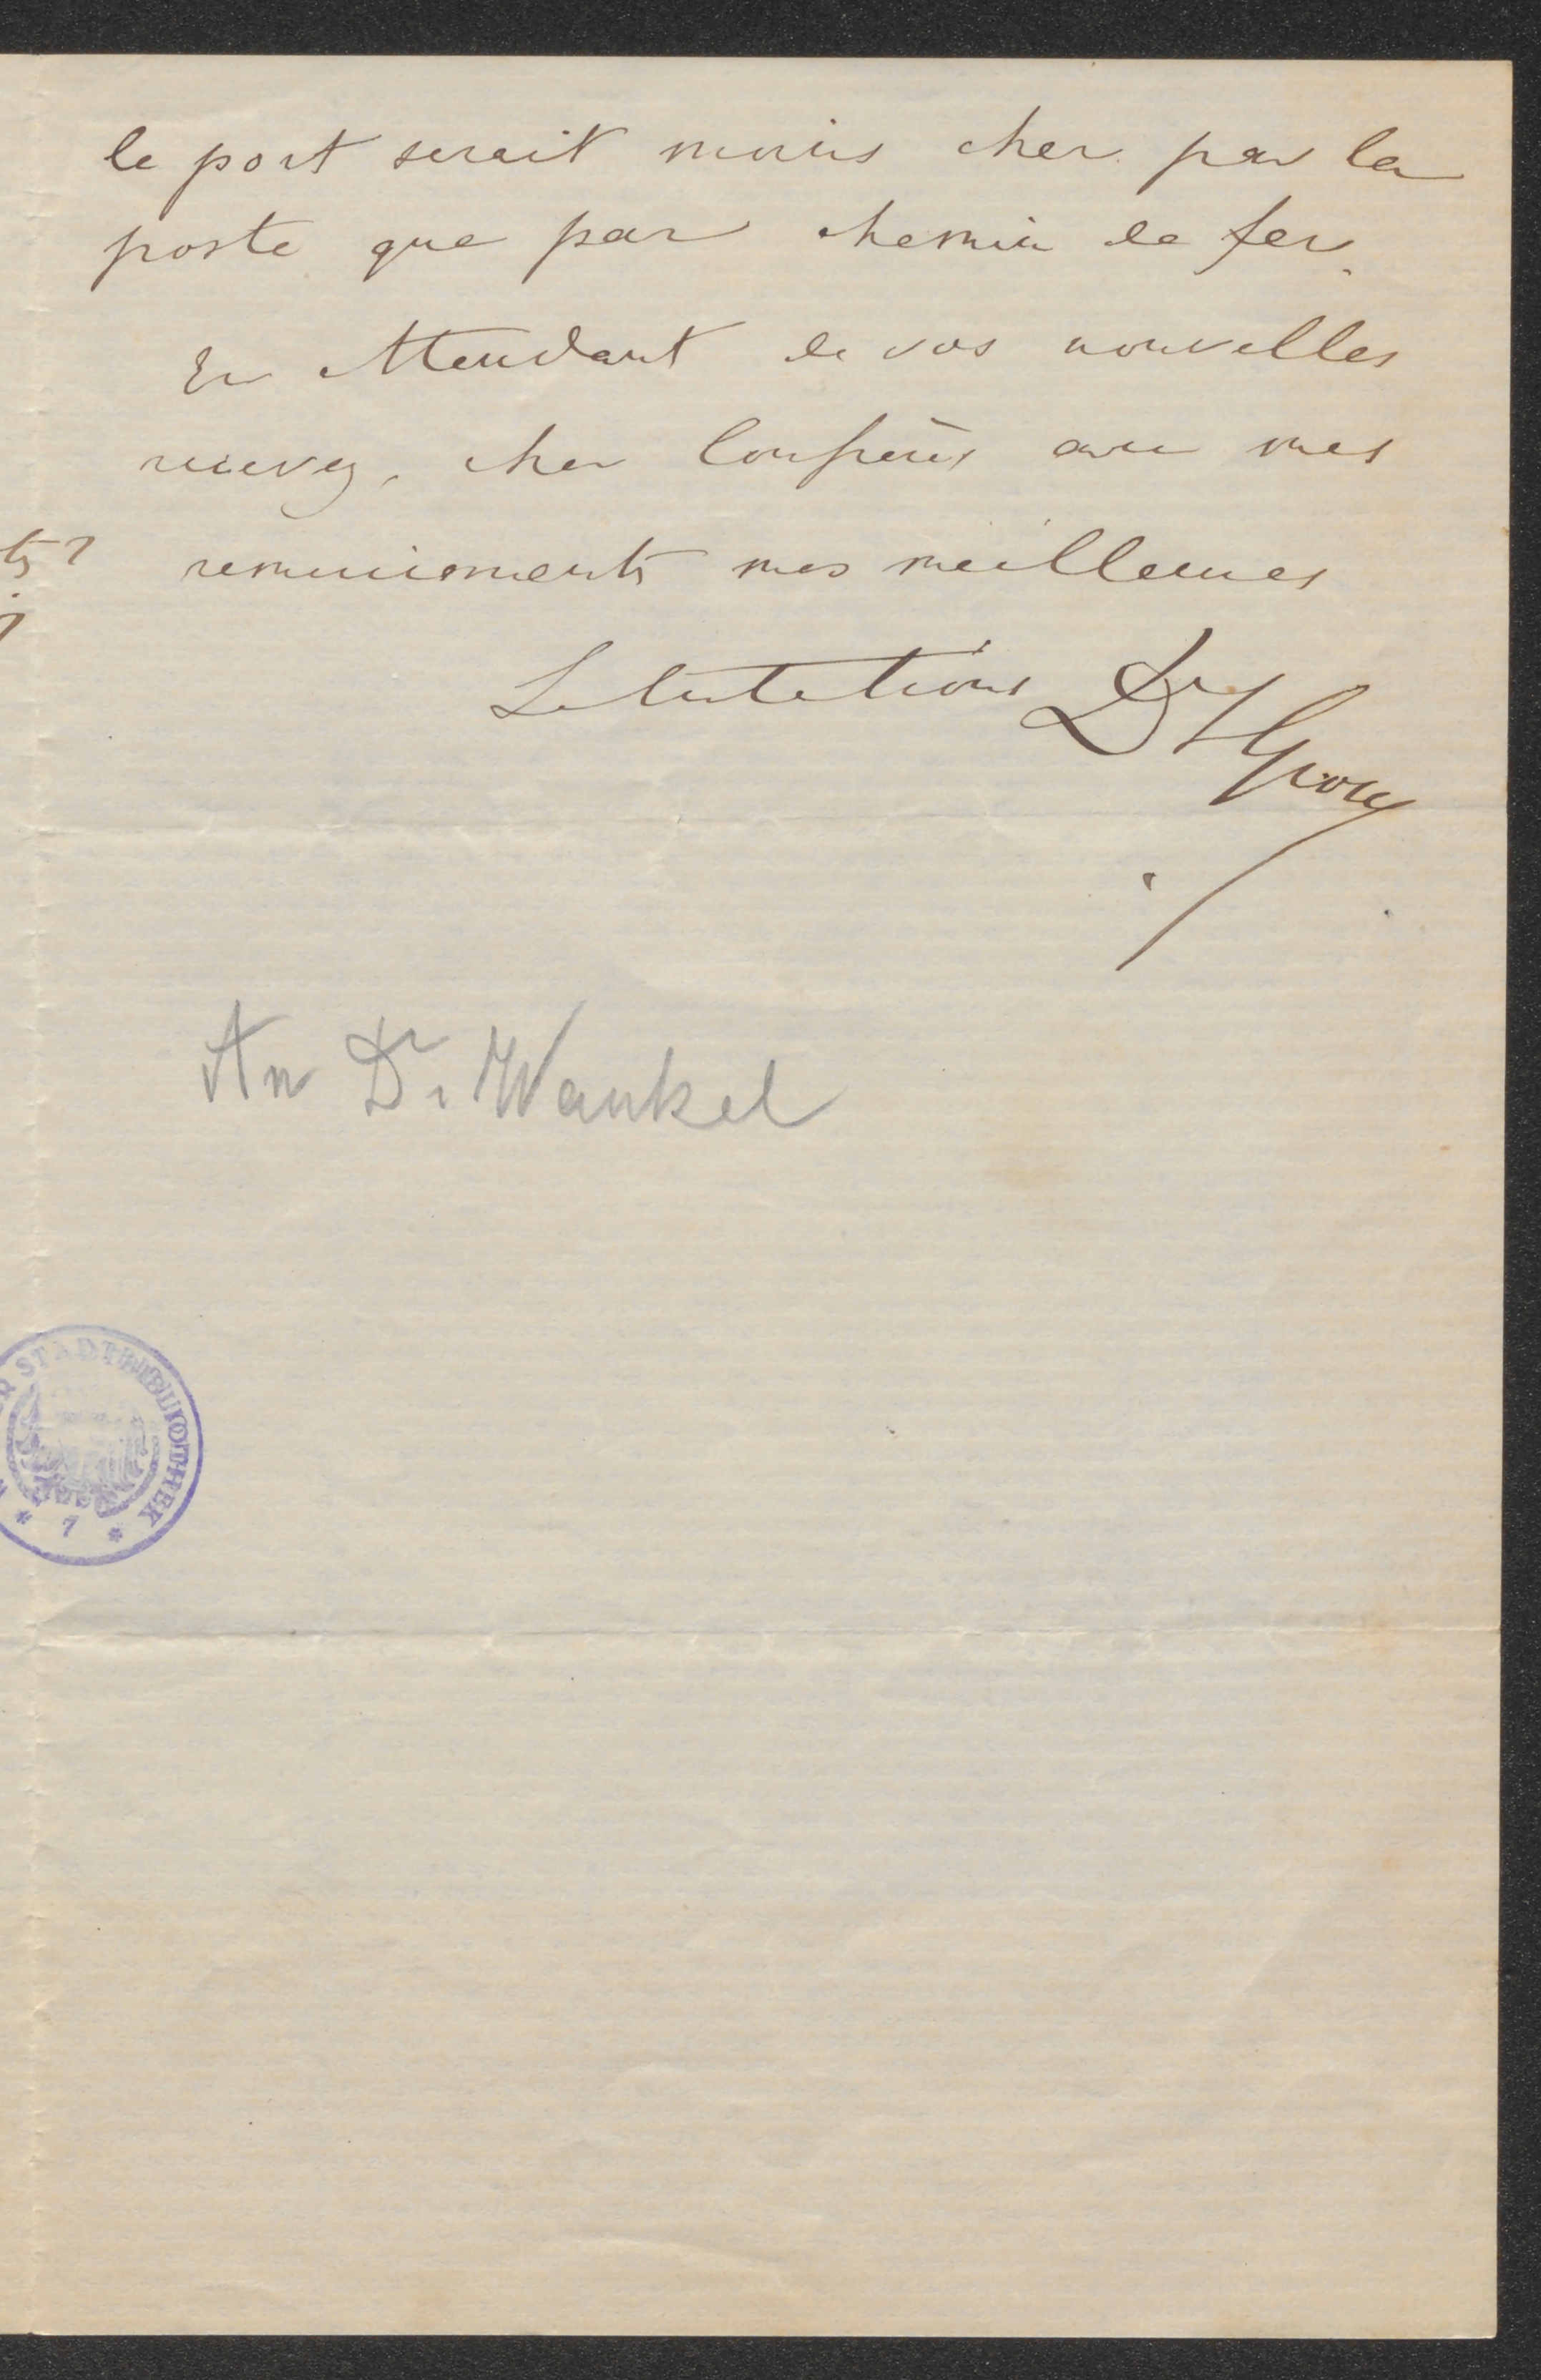 le port serait moins cher par la
poste que par chemin de fer.
En attendant de vos nouvelles
recevez, cher Confrère, avec mes
remerciements mes meilleures
Salutations Dr Gross
An Dr. Wankel
STADTBIBLIOTHEK
* 7 *